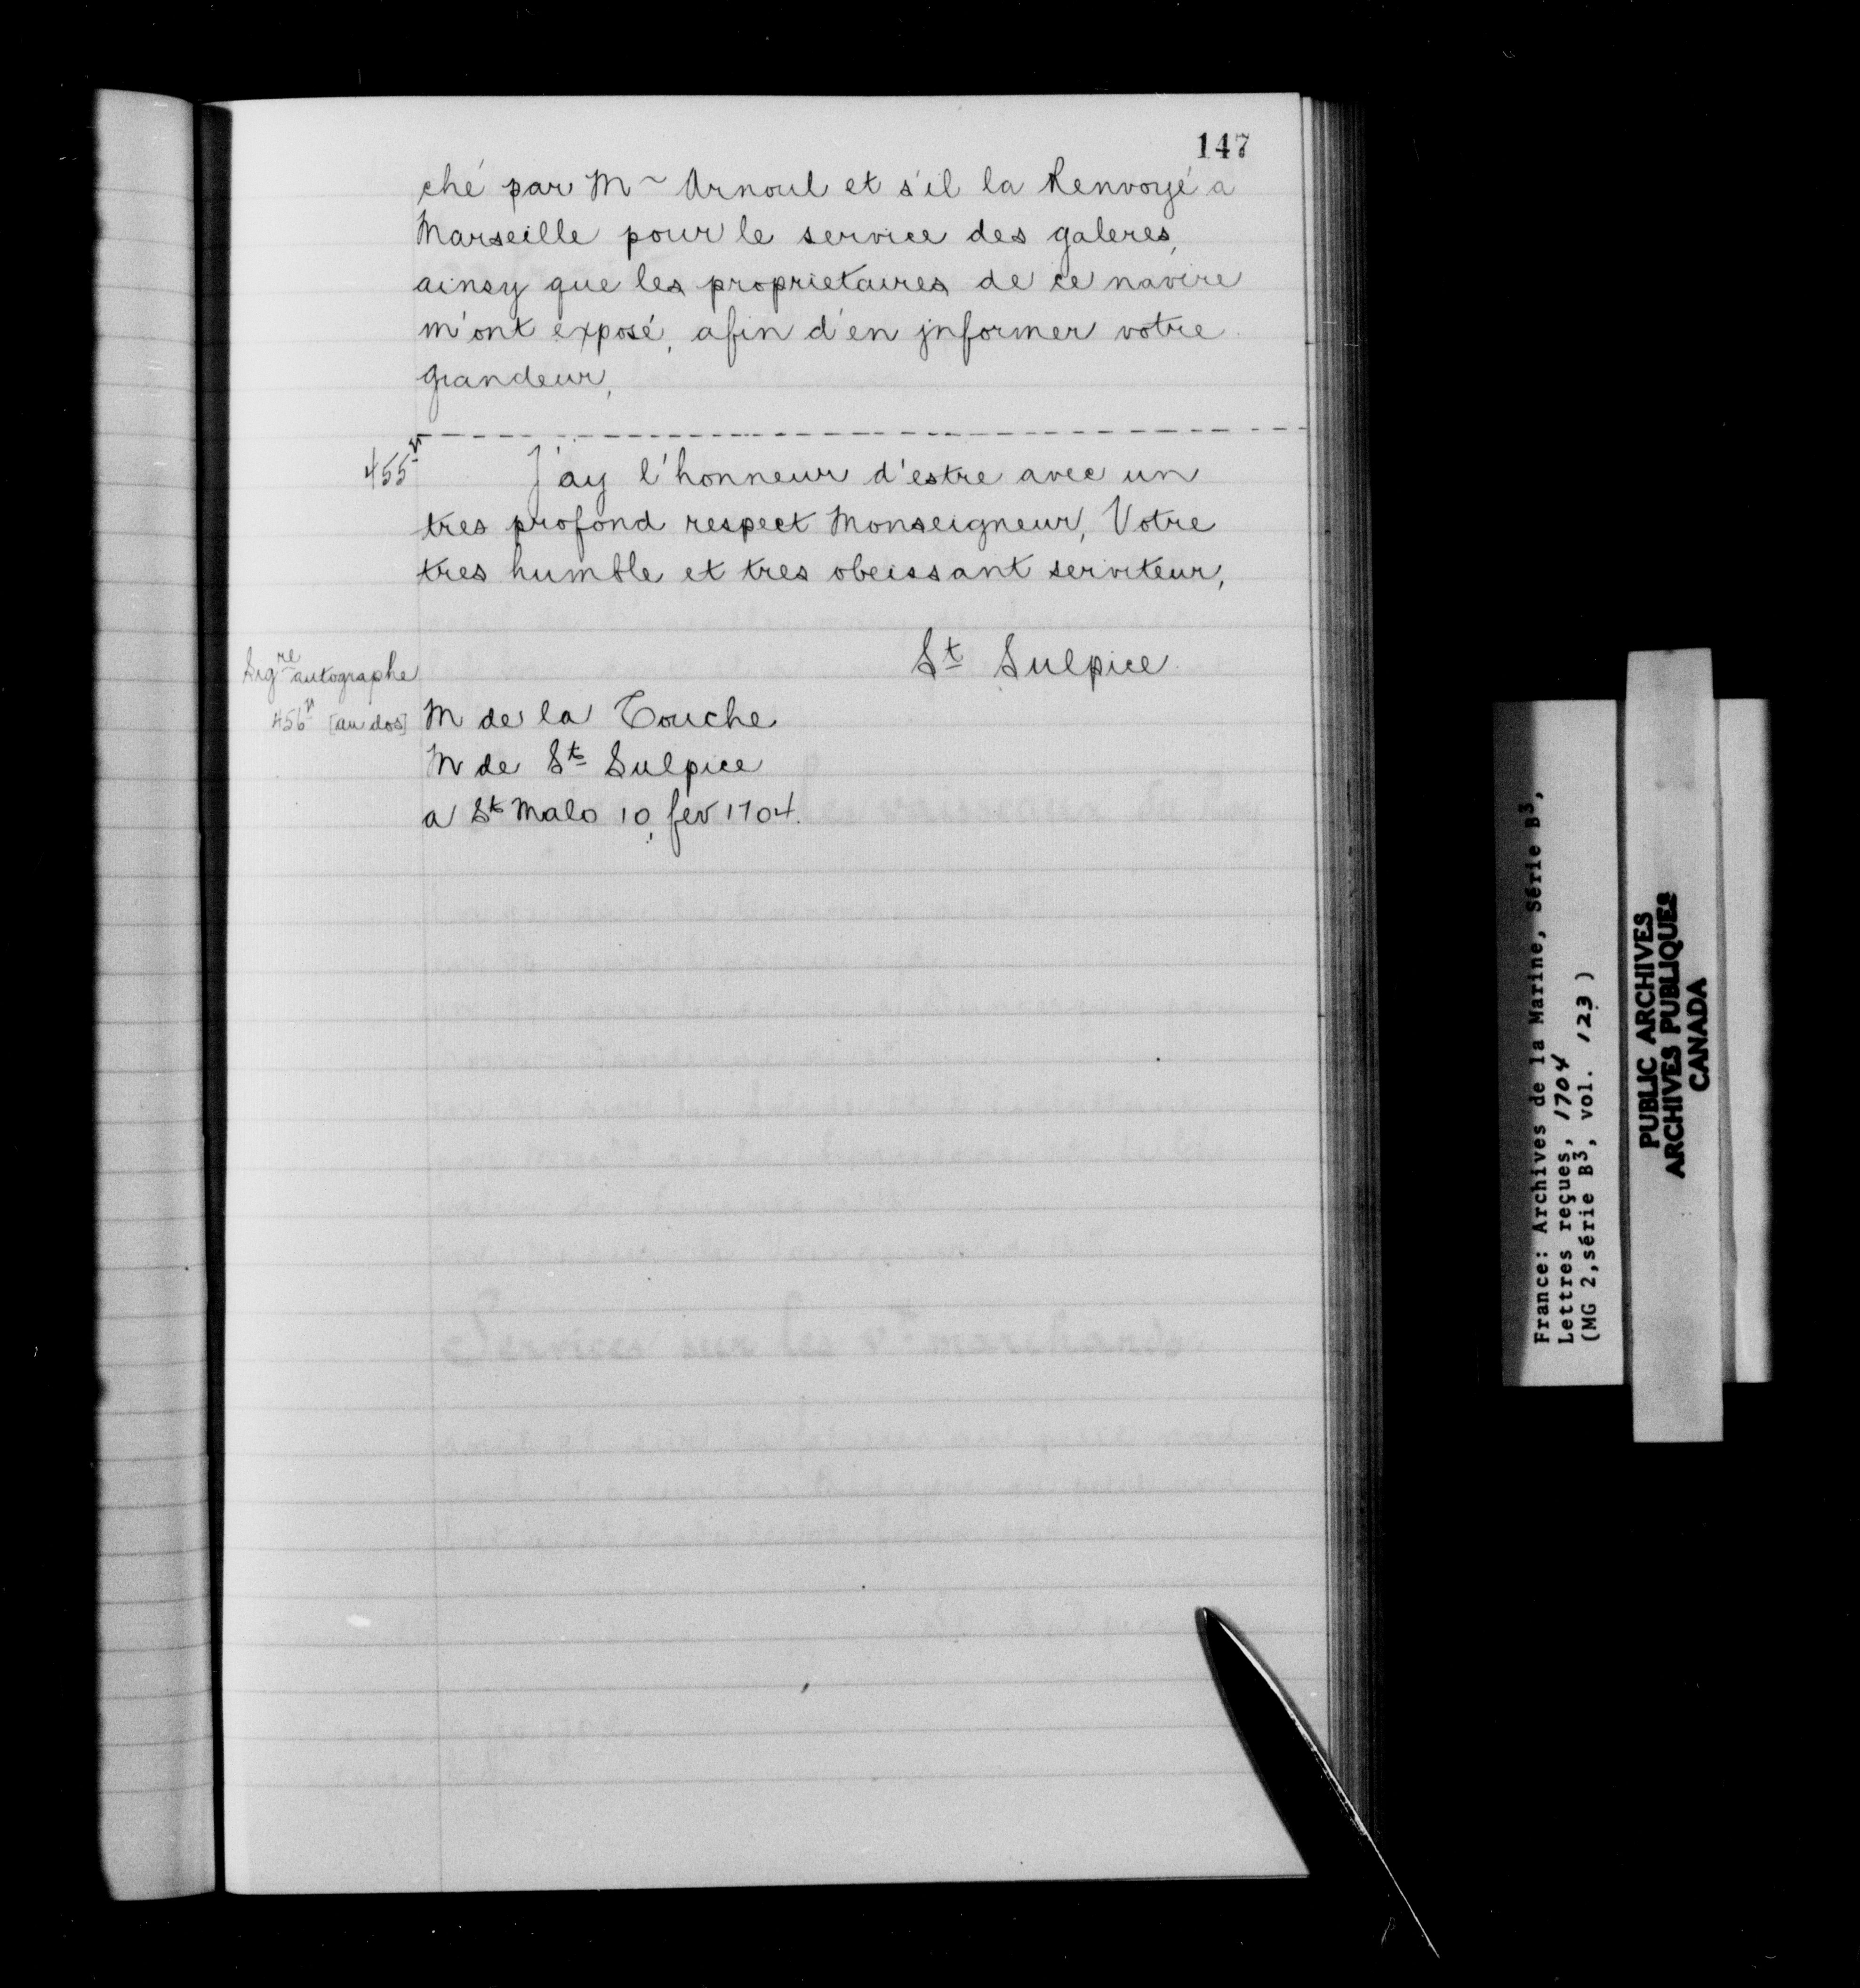 147
ché par M~ Arnoul et s'il la Renvoyé a
Marseille pour le service des galeres,
ainsy que les proprietaires de ce navire
m'ont exposé, afin d'en jnformer votre
grandeur,
455 vº
J'ay l'honneur d'estre avec un
tres profond respect Monseigneur, Votre
tres humble et tres obeissant serviteur,
St Sulpice.
Sigre autographe
456 vº [au dos]
M de la Touche
M de Ste Sulpice
a St Malo 10, fev 1704.
France: Archives de la Marine, Série B3,
Lettres reçues, 1704
(MG 2, série B3, vol. 123)
PUBLIC ARCHIVES
ARCHIVES PUBLIQUES
CANADA